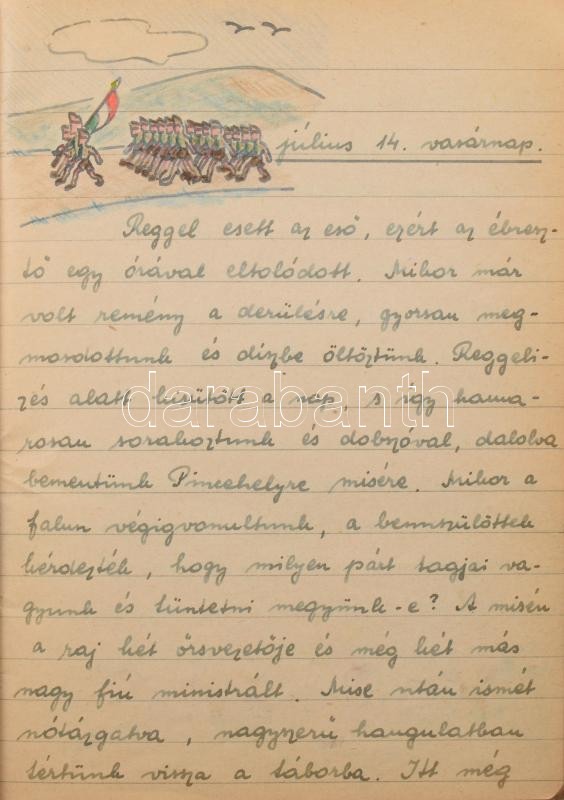 július 14. vasárnap.
Reggel esett az eső, ezért az ébresz-
tő egy órával eltolódott. Mikor már
volt remény a derülésre, gyorsan meg-
mosdottunk és díszbe öltöztünk. Reggeli-
zés alatt kisütött a nap, s így hama-
rosan sorakoztunk és dobszóval, dalolva
bementünk Pincehelyre misére. Mikor a
falun végigvonultunk, a bennszülöttek
kérdezték, hogy milyen párt tagjai va-
gyunk és tüntetni megyünk-e? A misén
a raj két őrsvezetője és még két más
nagy fiú ministrált. Mise után ismét
nótázgatva, nagyszerű hangulatban
tértünk vissza a táborba. Itt még
darabanth